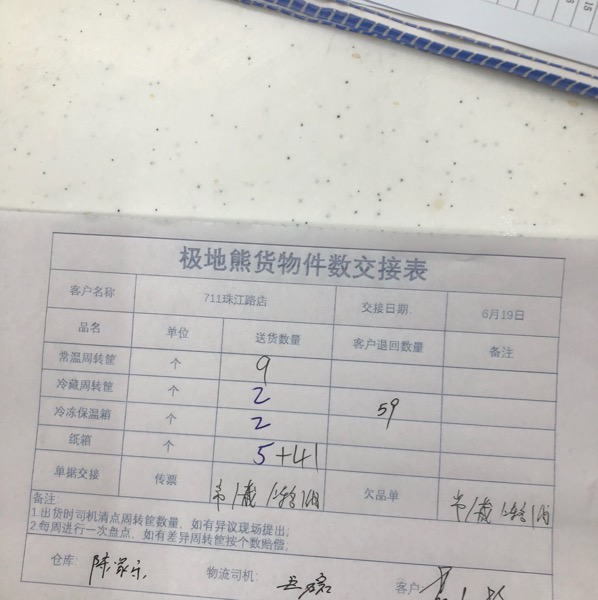 极地熊货物件数交接表
客户名称 711珠江路店 交接日期. 6月19日
品名 单位 送货数量 客户退回数量 备注
常温周转筐 个 9
冷藏周转筐 个 2 59
冷冻保温箱 个 2
纸箱 个 5+41
单据交接 传票 欠品单
备注:
1.出货时司机清点周转筐数量，如有异议现场提出;
2.每周进行一次盘点，如有差异周转筐按个数赔偿;
仓库: 物流司机: 客户:
15